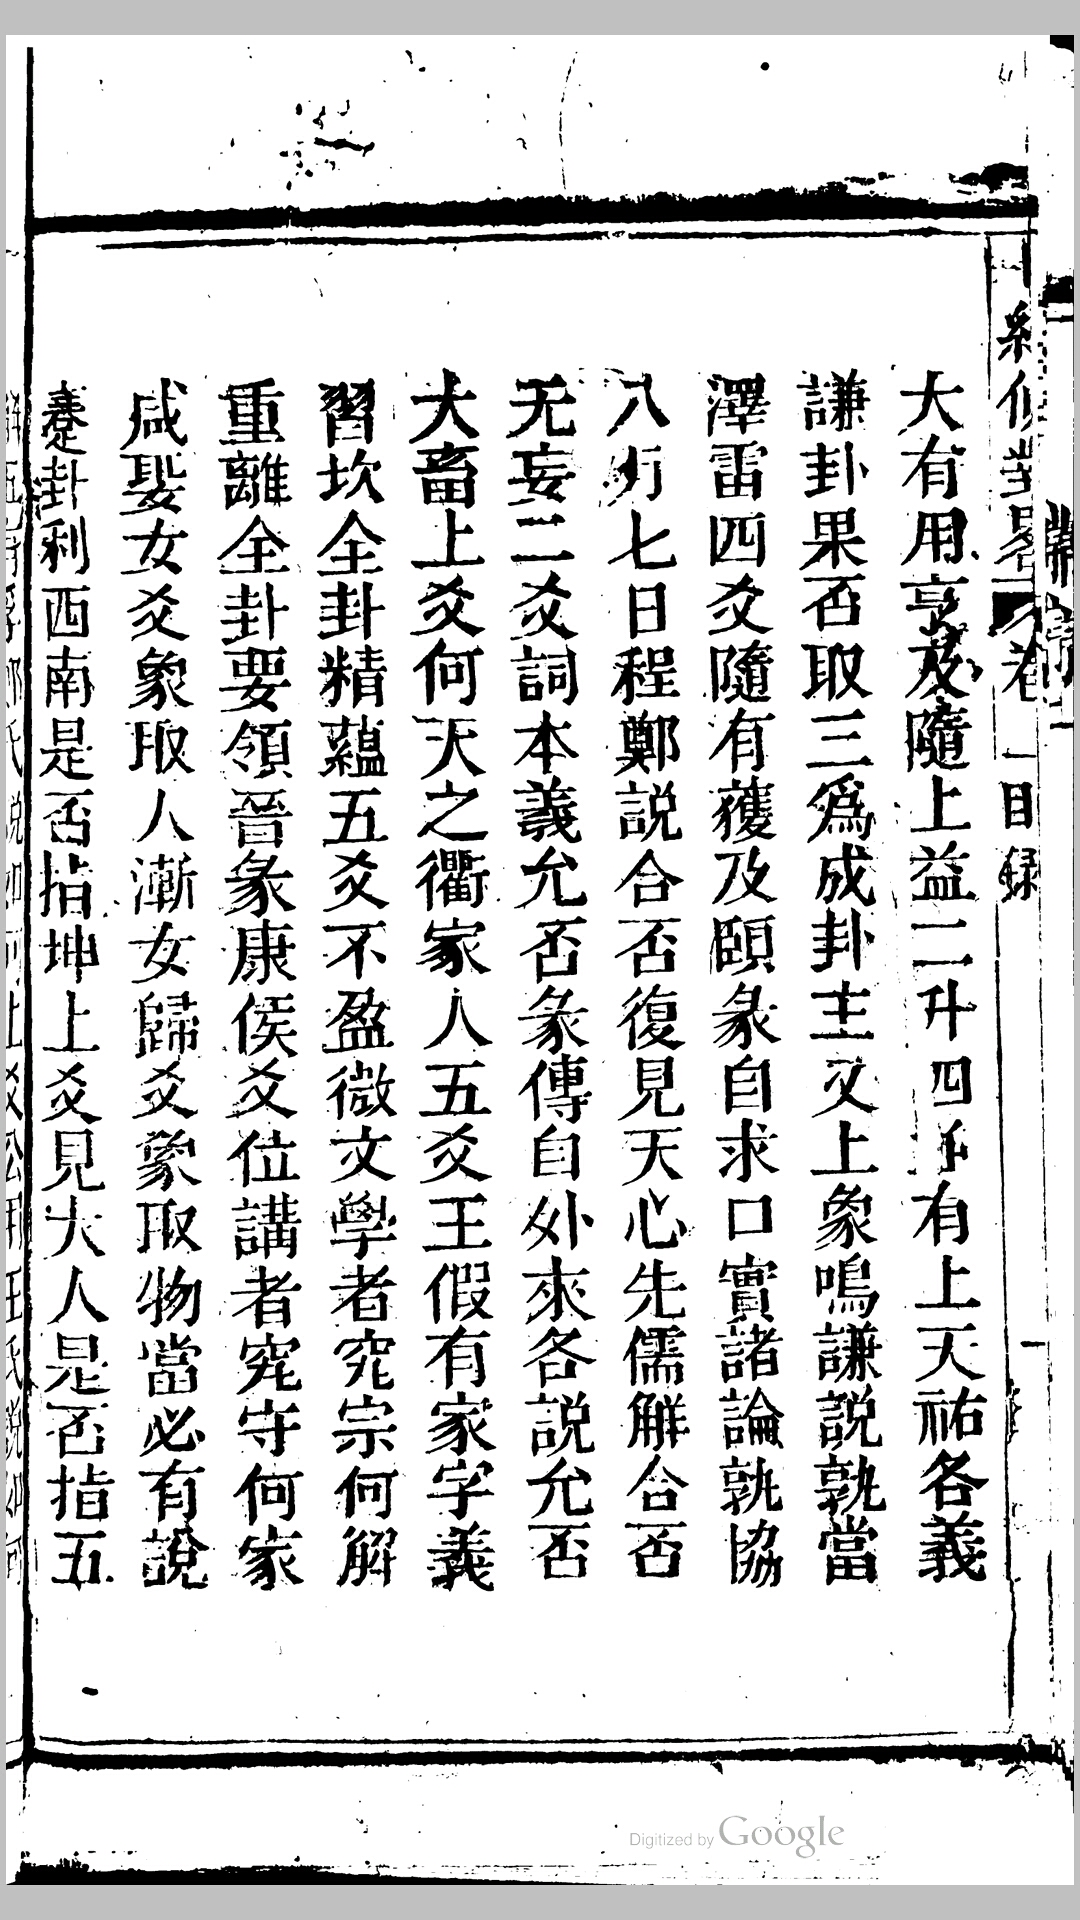 大有用亨及隨上益二升四爻有上天祐各義
謙卦果否取三爲成卦主又上象鳴謙說孰當
澤雷四爻隨有獲及頤彖自求口實諸論孰協
八月七日程鄭説合否復見天心先儒解合否
无妄二爻詞本義允否彖傳自外來各説允否
大畜上爻何天之衢家人五爻王假有家字義
習坎全卦精蘊五爻不盈微文學者究宗何解
重離全卦要領晉彖康侯爻位講者究守何家
咸娶女爻象取人漸女歸爻象取物當必有說
蹇卦利西南是否指坤上爻見大人是否指五
卷一目録
Digitized by Google